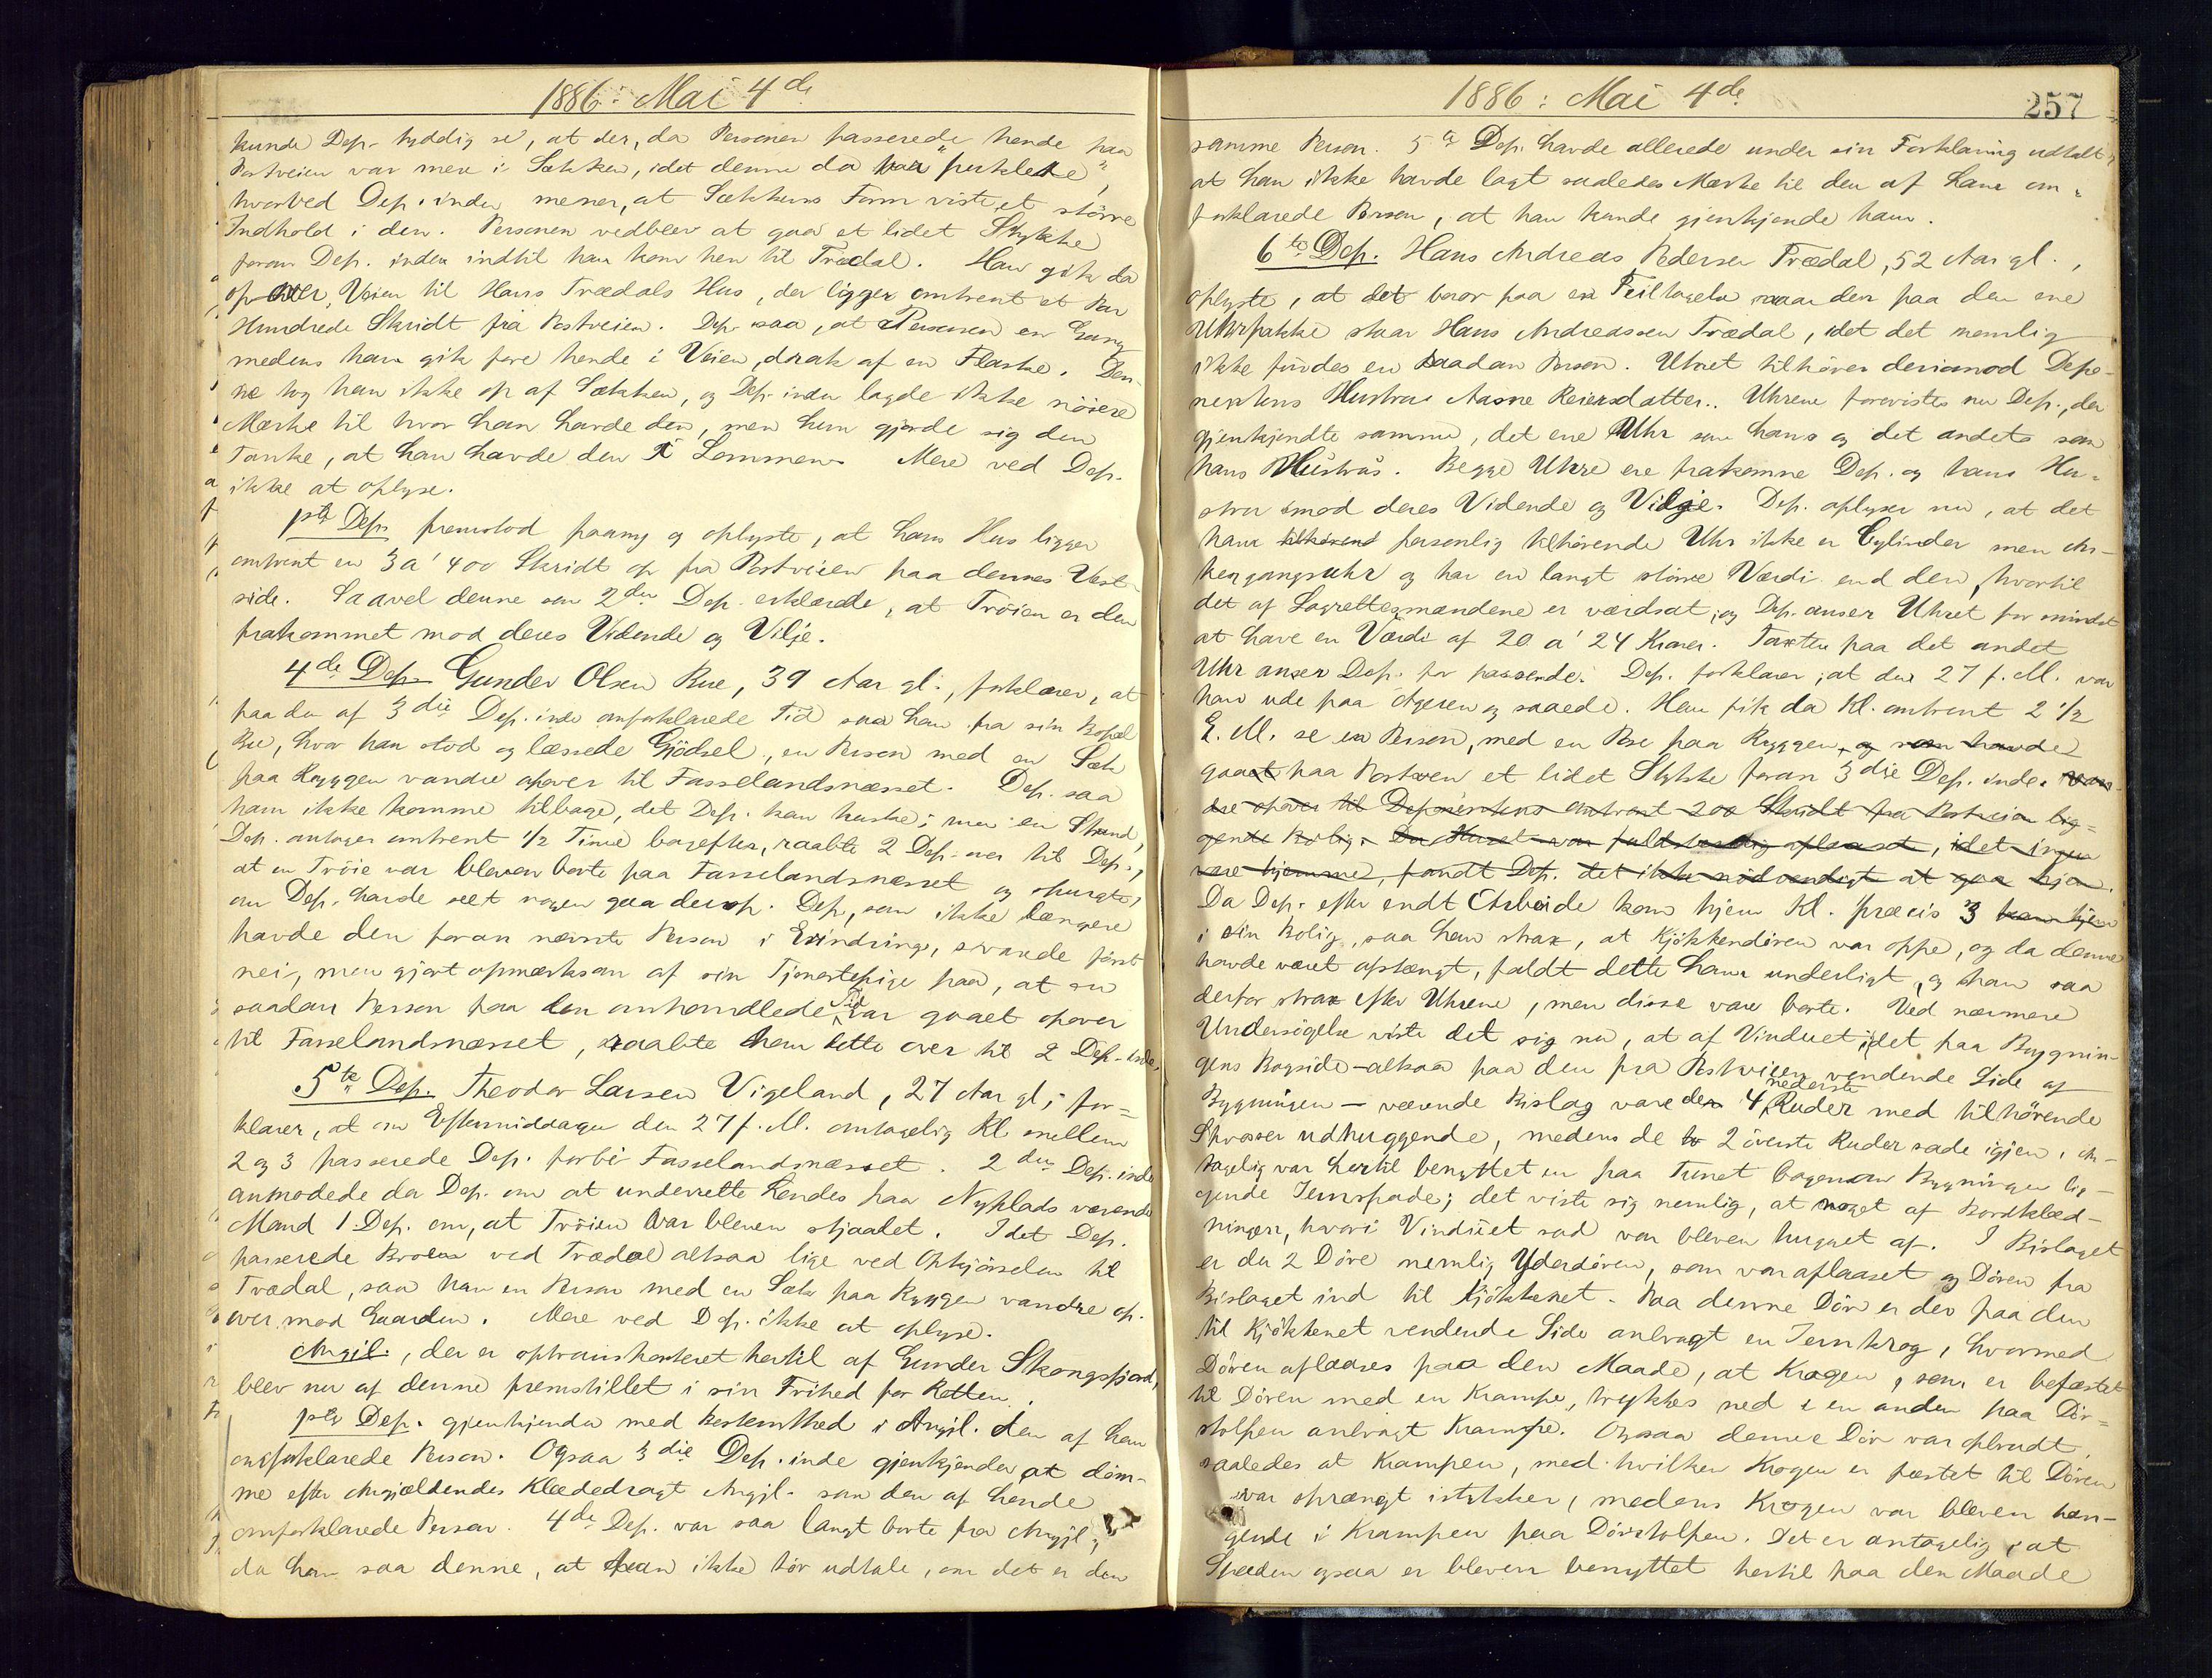 1886: Mai 4de
kunde Dep. tydelig se, at der, da Personen passerede hende paa
Postveien var mere i Sækken, idet denne da var "puklete",
hvorved Dep. inden mener, at Sækkens Form viste et större
Indhold i den. Personen vedblev at gaa et lidet Stykke
foran Dep. inden indtil han kom hen til Trædal. Han gik da
op Veien til Hans Trædals Hus, der ligger omtrent et Par
Hundrede Skridt fra Postveien. Dep. saa, at Personen en Gang
medens han gik fore hende i Veien, drak af en Flaske. Den-
ne tog han ikke op af Sækken, og Dep. inden lagde ikke nöiere
Mærke til hvor han havde den, men hun gjorde sig den
Tanke, at han havde den i Lommen. Mere ved Dep.
ikke at oplyse.
1ste Dep. fremstod paany og oplyste, at hans Hus ligger
omtrent en 3 a' 400 Skridt op fra Postveien paa dennes Vest-
side. Saavel denne som 2den Dep. erklærede, at Tröien er dem
frakommet mod deres Vidende og Vilje.
4de Dep. Gunder Olsen Rue, 39 Aar gl., forklarer, at
paa den af 3die Dep. inde omforklarede Tid saa han fra sin Bopæl
Rue, hvor han stod og læssede Gjödsel, en Person med en Sæk
paa Ryggen vandre opover til Fasselandsnæsset. Dep. saa
ham ikke komme tilbage, det Dep. kan huske; men en Stund,
Dep. antager omtrent 1/2 Time bagefter, raabte 2 Dep. over til Dep.,
at en Tröie var bleven borte paa Fasselandsnæsset og spurgte,
om Dep. havde seet nogen gaa derop. Dep., som ikke længere
havde den foran nævnte Person i Erindring, svarede först
nei, men gjort opmærksom af sin Tjenestepige paa, at en
saadan Person paa den omhandlede Tid var gaaet opover
til Fasselandsnæsset, raabte han dette over til 2 Dep. inde.
5te Dep. Theodor Larsen Vigeland, 27 Aar gl., for-
klarer, at om Eftermiddagen den 27 f. M. antagelig Kl. mellem
2 og 3 passerede Dep. forbi Fasselandsnæsset. 2den Dep. inde
anmodede da Dep. om at underrette hendes paa Nyplads værende
Mand 1 Dep. om, at Tröien var bleven stjaalet. Idet Dep.
passerede Broen ved Trædal altsaa lige ved Opkjörselen til
Trædal, saa han en Person med en Sæk paa Ryggen vandre op-
over mod Gaarden. Mere ved Dep. ikke at oplyse.
Angjl., der er optransporteret hertil af Gunder Skongsfjord,
blev nu af denne fremstillet i sin Frihed for Retten.
1ste Dep. gjenkjender med Bestemthed i Angjl. den af ham
omforklarede Person. Ogsaa 3die Dep. inde gjenkjender, at döm-
me efter Angjældendes Klædedragt Angjl. som den af hende
omforklarede Person. 4de Dep. var saa langt borte fra Angjl.,
da han saa denne, at han ikke tör udtale, om det er den
1886: Mai 4de
257
samme Person. 5te Dep. havde allerede under sin Forklaring udtalt,
at han ikke havde lagt saaledes Mærke til den af ham om-
forklarede Person, at han kunde gjenkjende ham.
6te Dep. Hans Andreas Pedersen Trædal, 52 Aar gl.,
oplyste, at det beror paa en Feiltagelse naar der paa den ene
Uhrpakke staar Hans Andreassen Trædal, idet det nemlig
ikke findes en saadan Person. Uhret tilhörer derimod Depo-
nentens Hustru Aasne Reiersdatter. Uhrene forevistes nu Dep., der
gjenkjendte samme, det ene Uhr som hans og det andet som
hans Hustrus. Begge Uhre ere frakomne Dep. og hans Hu-
stru imod deres Vidende og Vilje. Dep. oplyser nu, at det
ham tilhörend personlig tilhörende Uhr ikke er Cylinder men An-
kergangsuhr og har en langt större Værdi end den, hvortil
det af Lagrettesmændene er værdsat, og Dep. anser Uhret for mindst
at have en Værdi af 20 a' 24 Kroner. Taxten paa det andet
Uhr anser Dep. for passende. Dep. forklarer, at den 27 f. M. var
han ude paa Ageren og saaede. Han fik da Kl. omtrent 2 1/2
E. M. se en Person, med en Pose paa Ryggen, og som havde
gaaet paa Postveien et lidet Stykke foran 3die Dep. inde. van-
dre opover til Deponentens omtrent 200 Skridt fra Postveien lig-
gende Bolig. Da Huset var fuldstændig aflaaset, idet ingen
vare hjemme, fandt Dep. det ikke nödvendigt at gaa hjem.
Da Dep. efter endt Arbeide kom hjem Kl. præcis 3 kom hjem
i sin Bolig, saa han strax, at Kjökkendören var oppe, og da denne
havde været afstængt, faldt dette ham underligt, og han saa
derfor strax efter Uhrene, men disse vare borte. Ved nærmere
Undersögelse viste det sig nu, at af Vinduet i det paa Bygnin-
gens Bagside – altsaa paa den fra Postveien vendende Side af
Bygningen – værende Bislag vare de 4 nederste Ruder med tilhörende
Sprosser udhuggende, medens de to 2 överste Ruder sade igjen. An-
tagelig var hertil benyttet en paa Tunet bagenom Bygningen lig-
gende Jernspade; det viste sig nemlig, at noget af Bordklæd-
ningen, hvori Vinduet sad var bleven hugget af. I Bislaget
er der 2 Döre nemlig Yderdören, som var aflaaset og Dören fra
Bislaget ind til Kjökkenet. Paa denne Dör er der paa den
til Kjökkenet vendende Side anbragt en Jernkrog, hvormed
Dören aflaases paa den Maade, at Krogen, som er befæstet
til Dören med en Krampe, trykkes ned i en anden paa Dör-
stolpen anbragt Krampe. Ogsaa denne Dör var opbrudt,
saaledes at Krampen, med hvilken Krogen er fæstet til Dören
var sprængt istykker, medens Krogen var bleven hæn-
gende i Krampen paa Dörstolpen. Det er antagelig, at
Spaden ogsaa er bleven benyttet hertil paa den Maade